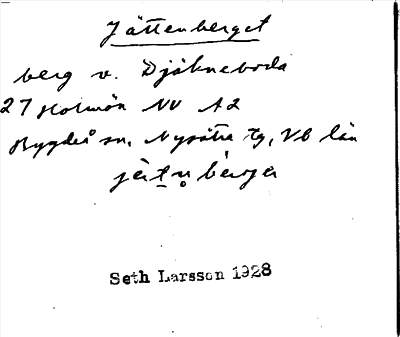 Jättenberget
berg v. Djäkneboda
27 Holmön NV A2
Bygdeå sn, Nysätra tg, Vb län
Seth Larsson 1928